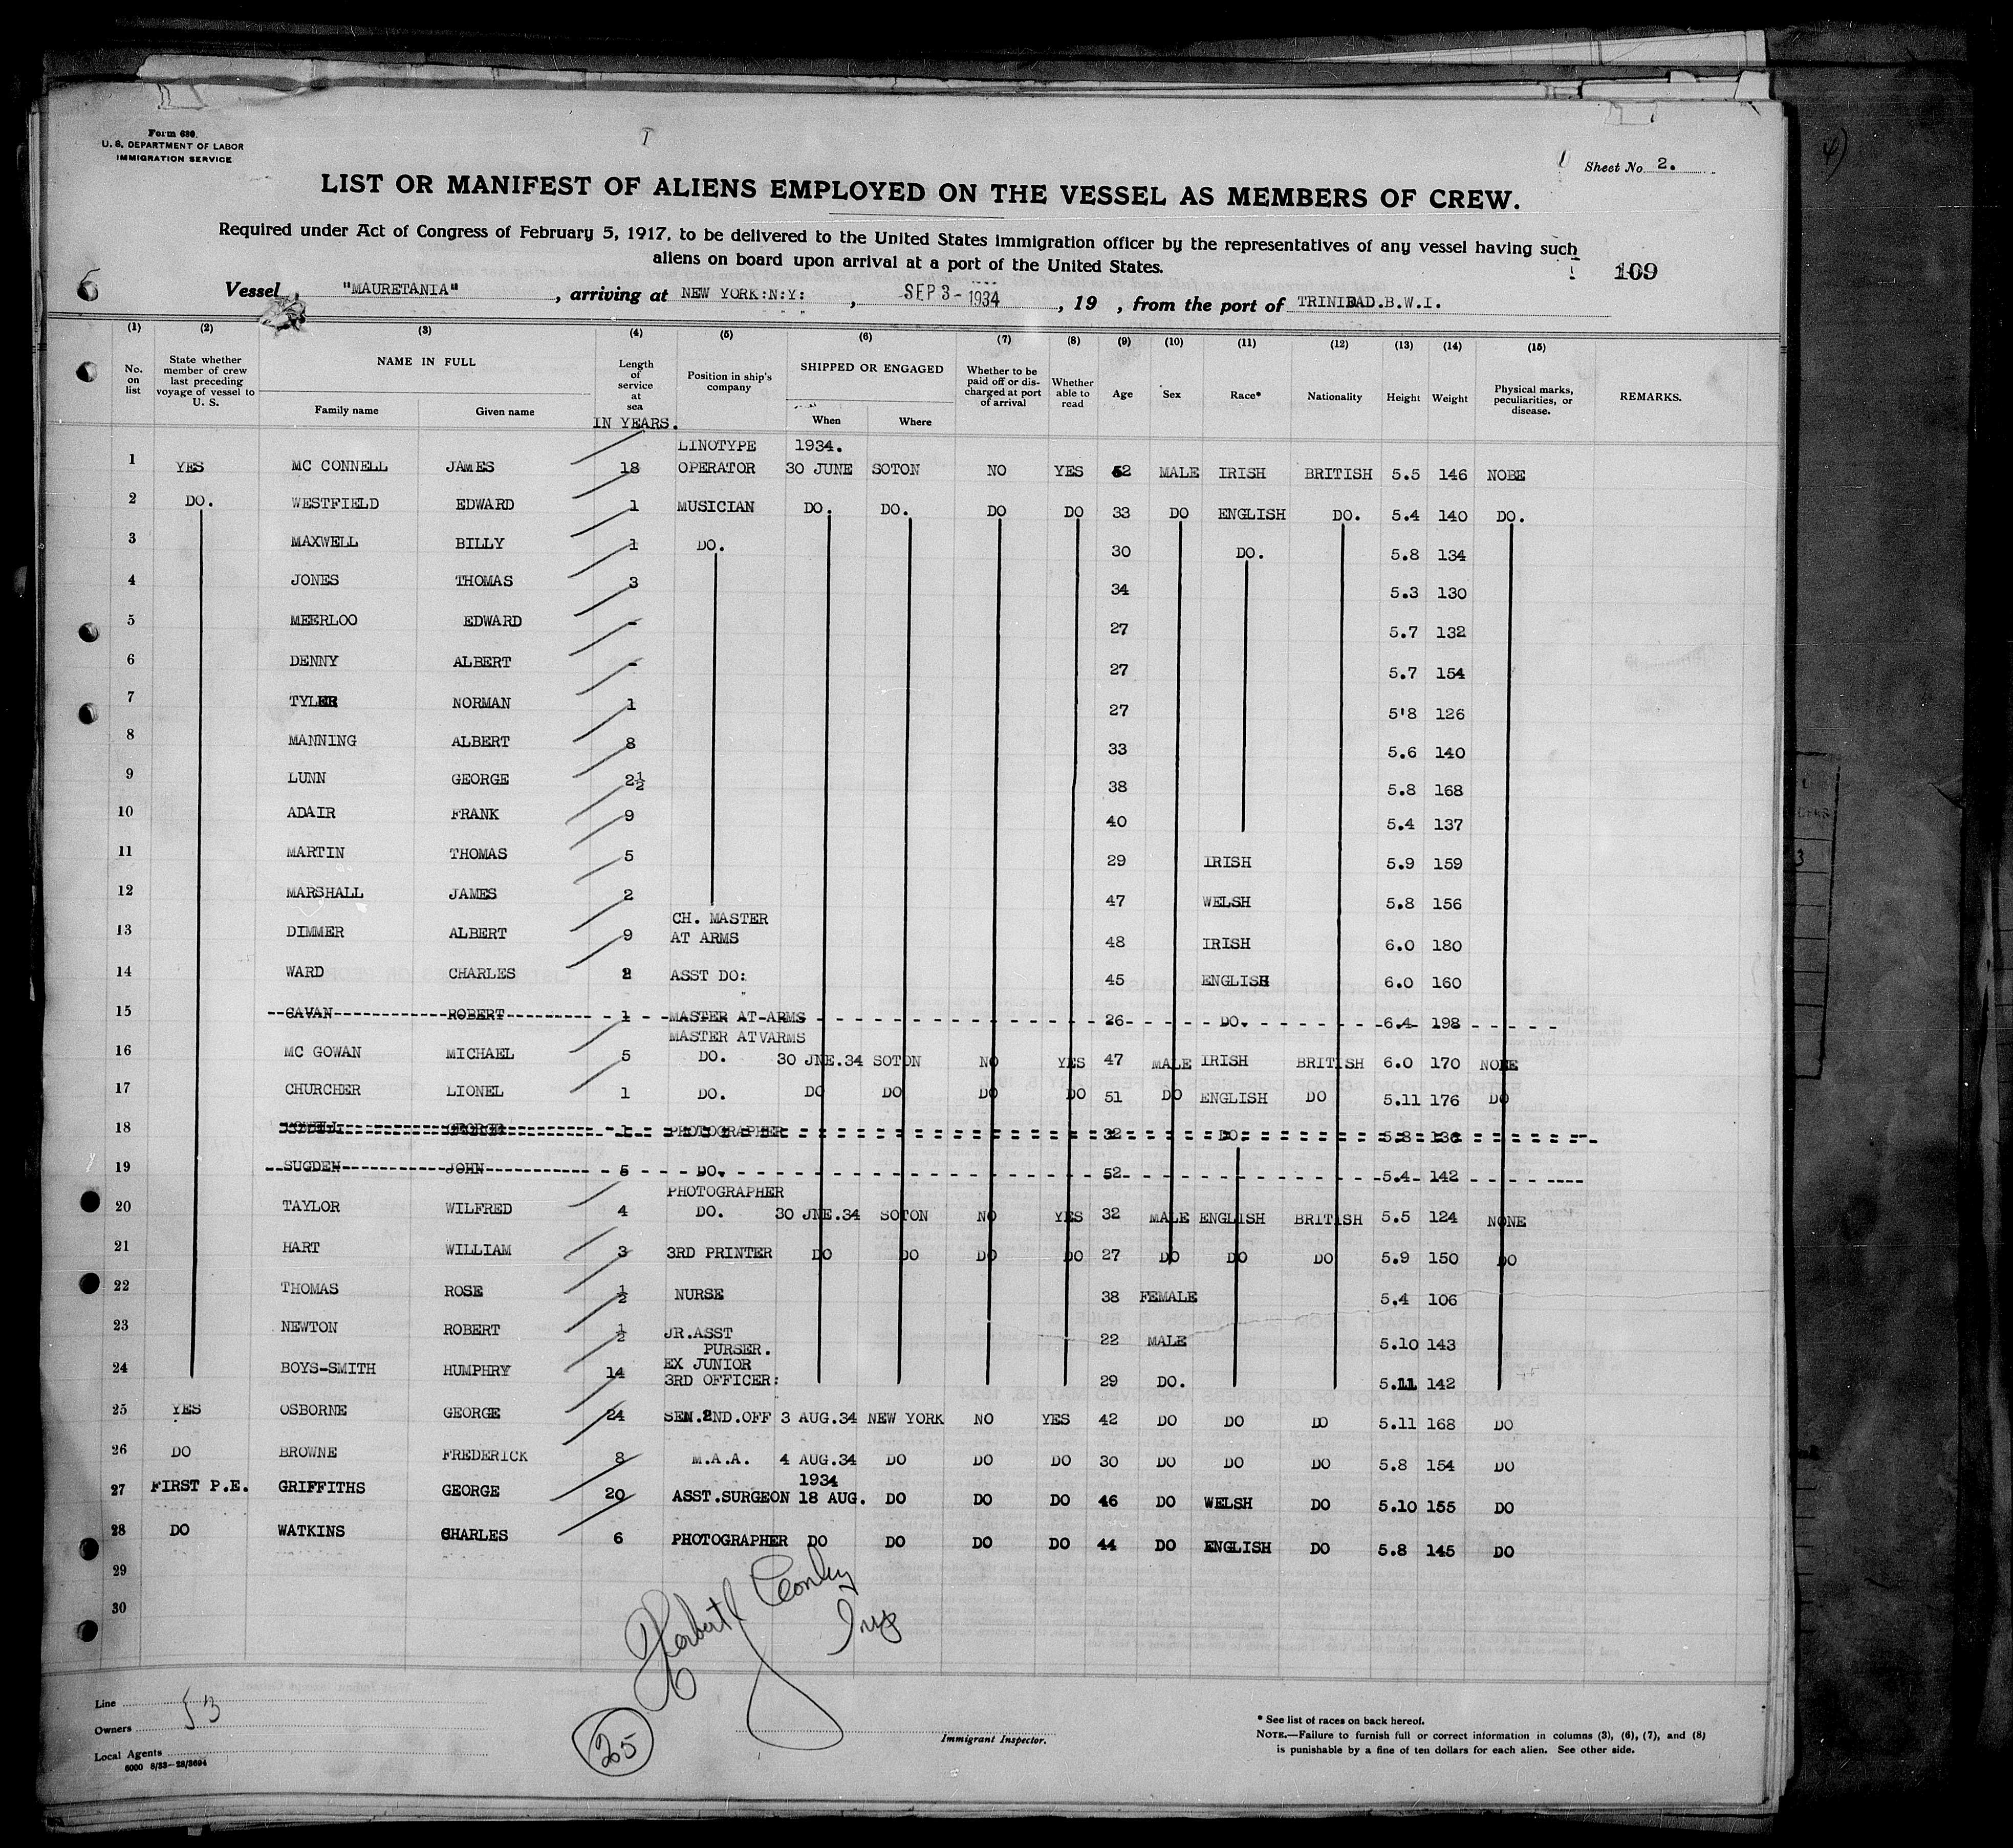 Form 680.
U. S. DEPARTMENT OF LABOR
IMMIGRATION SERVICE
Sheet No. 2.
LIST OR MANIFEST OF ALIENS EMPLOYED ON THE VESSEL AS MEMBERS OF CREW.
Required under Act of Congress of February 5, 1917, to be delivered to the United States immigration officer by the representatives of any vessel having such
aliens on board upon arrival at a port of the United States.
109
6
Vessel "MAURETANIA" , arriving at NEW YORK:N:Y: , SEP 3 - 1934 , 19 , from the port of TRINIDAD.B.W.I.
(1) (2) (3) (4) (5) (6) (7) (8) (9) (10) (11) (12) (13) (14) (15)
No. on list State whether member of crew last preceding voyage of vessel to U. S. NAME IN FULL Length of service at sea Position in ship's company SHIPPED OR ENGAGED Whether to be paid off or discharged at port of arrival Whether able to read Age Sex Race* Nationality Height Weight Physical marks, peculiarities, or disease. REMARKS.
Family name Given name When Where
IN YEARS.
LINOTYPE 1934.
1 YES MC CONNELL JAMES 18 OPERATOR 30 JUNE SOTON NO YES 52 MALE IRISH BRITISH 5.5 146 NOBE
2 DO. WESTFIELD EDWARD 1 MUSICIAN DO. DO. DO DO 33 DO ENGLISH DO. 5.4 140 DO.
3 MAXWELL BILLY 1 DO. 30 DO. 5.8 134
4 JONES THOMAS 3 34 5.3 130
5 MEERLOO EDWARD - 27 5.7 132
6 DENNY ALBERT - 27 5.7 154
7 TYLER NORMAN 1 27 5'8 126
8 MANNING ALBERT 8 33 5.6 140
9 LUNN GEORGE 2½ 38 5.8 168
10 ADAIR FRANK 9 40 5.4 137
11 MARTIN THOMAS 5 29 IRISH 5.9 159
12 MARSHALL JAMES 2 47 WELSH 5.8 156
CH. MASTER
13 DIMMER ALBERT 9 AT ARMS 48 IRISH 6.0 180
14 WARD CHARLES 2 ASST DO: 45 ENGLISH 6.0 160
15 CAVAN ROBERT 1 MASTER AT-ARMS 26 DO. 6.4 198
MASTER ATVARMS
16 MC GOWAN MICHAEL 5 DO. 30 JNE.34 SOTON NO YES 47 MALE IRISH BRITISH 6.0 170 NONE
17 CHURCHER LIONEL 1 DO. DO DO DO DO 51 DO ENGLISH DO 5.11 176 DO
18 GEORGE 1 PHOTOGRAPHER 32 DO 5.8 136
19 SUGDEN JOHN 5 DO. 52 5.4 142
PHOTOGRAPHER
20 TAYLOR WILFRED 4 DO. 30 JNE.34 SOTON NO YES 32 MALE ENGLISH BRITISH 5.5 124 NONE
21 HART WILLIAM 3 3RD PRINTER DO DO DO DO 27 DO DO DO 5.9 150 DO
22 THOMAS ROSE ½ NURSE 38 FEMALE 5.4 106
23 NEWTON ROBERT ½ JR.ASST 22 MALE 5.10 143
PURSER.
EX JUNIOR
24 BOYS-SMITH HUMPHRY 14 3RD OFFICER: 29 DO. 5.11 142
25 YES OSBORNE GEORGE 24 SEN.2ND.OFF 3 AUG.34 NEW YORK NO YES 42 DO DO DO 5.11 168 DO
26 DO BROWNE FREDERICK 8 M.A.A. 4 AUG.34 DO DO DO 30 DO DO DO 5.8 154 DO
1934
27 FIRST P.E. GRIFFITHS GEORGE 20 ASST.SURGEON 18 AUG. DO DO DO 46 DO WELSH DO 5.10 155 DO
28 DO WATKINS CHARLES 6 PHOTOGRAPHER DO DO DO DO 44 DO ENGLISH DO 5.8 145 DO
29
30
Line
Owners
Local Agents
6000 8/33-28/3694
25
Immigrant Inspector.
* See list of races on back hereof.
NOTE.—Failure to furnish full or correct information in columns (3), (6), (7), and (8)
is punishable by a fine of ten dollars for each alien. See other side.